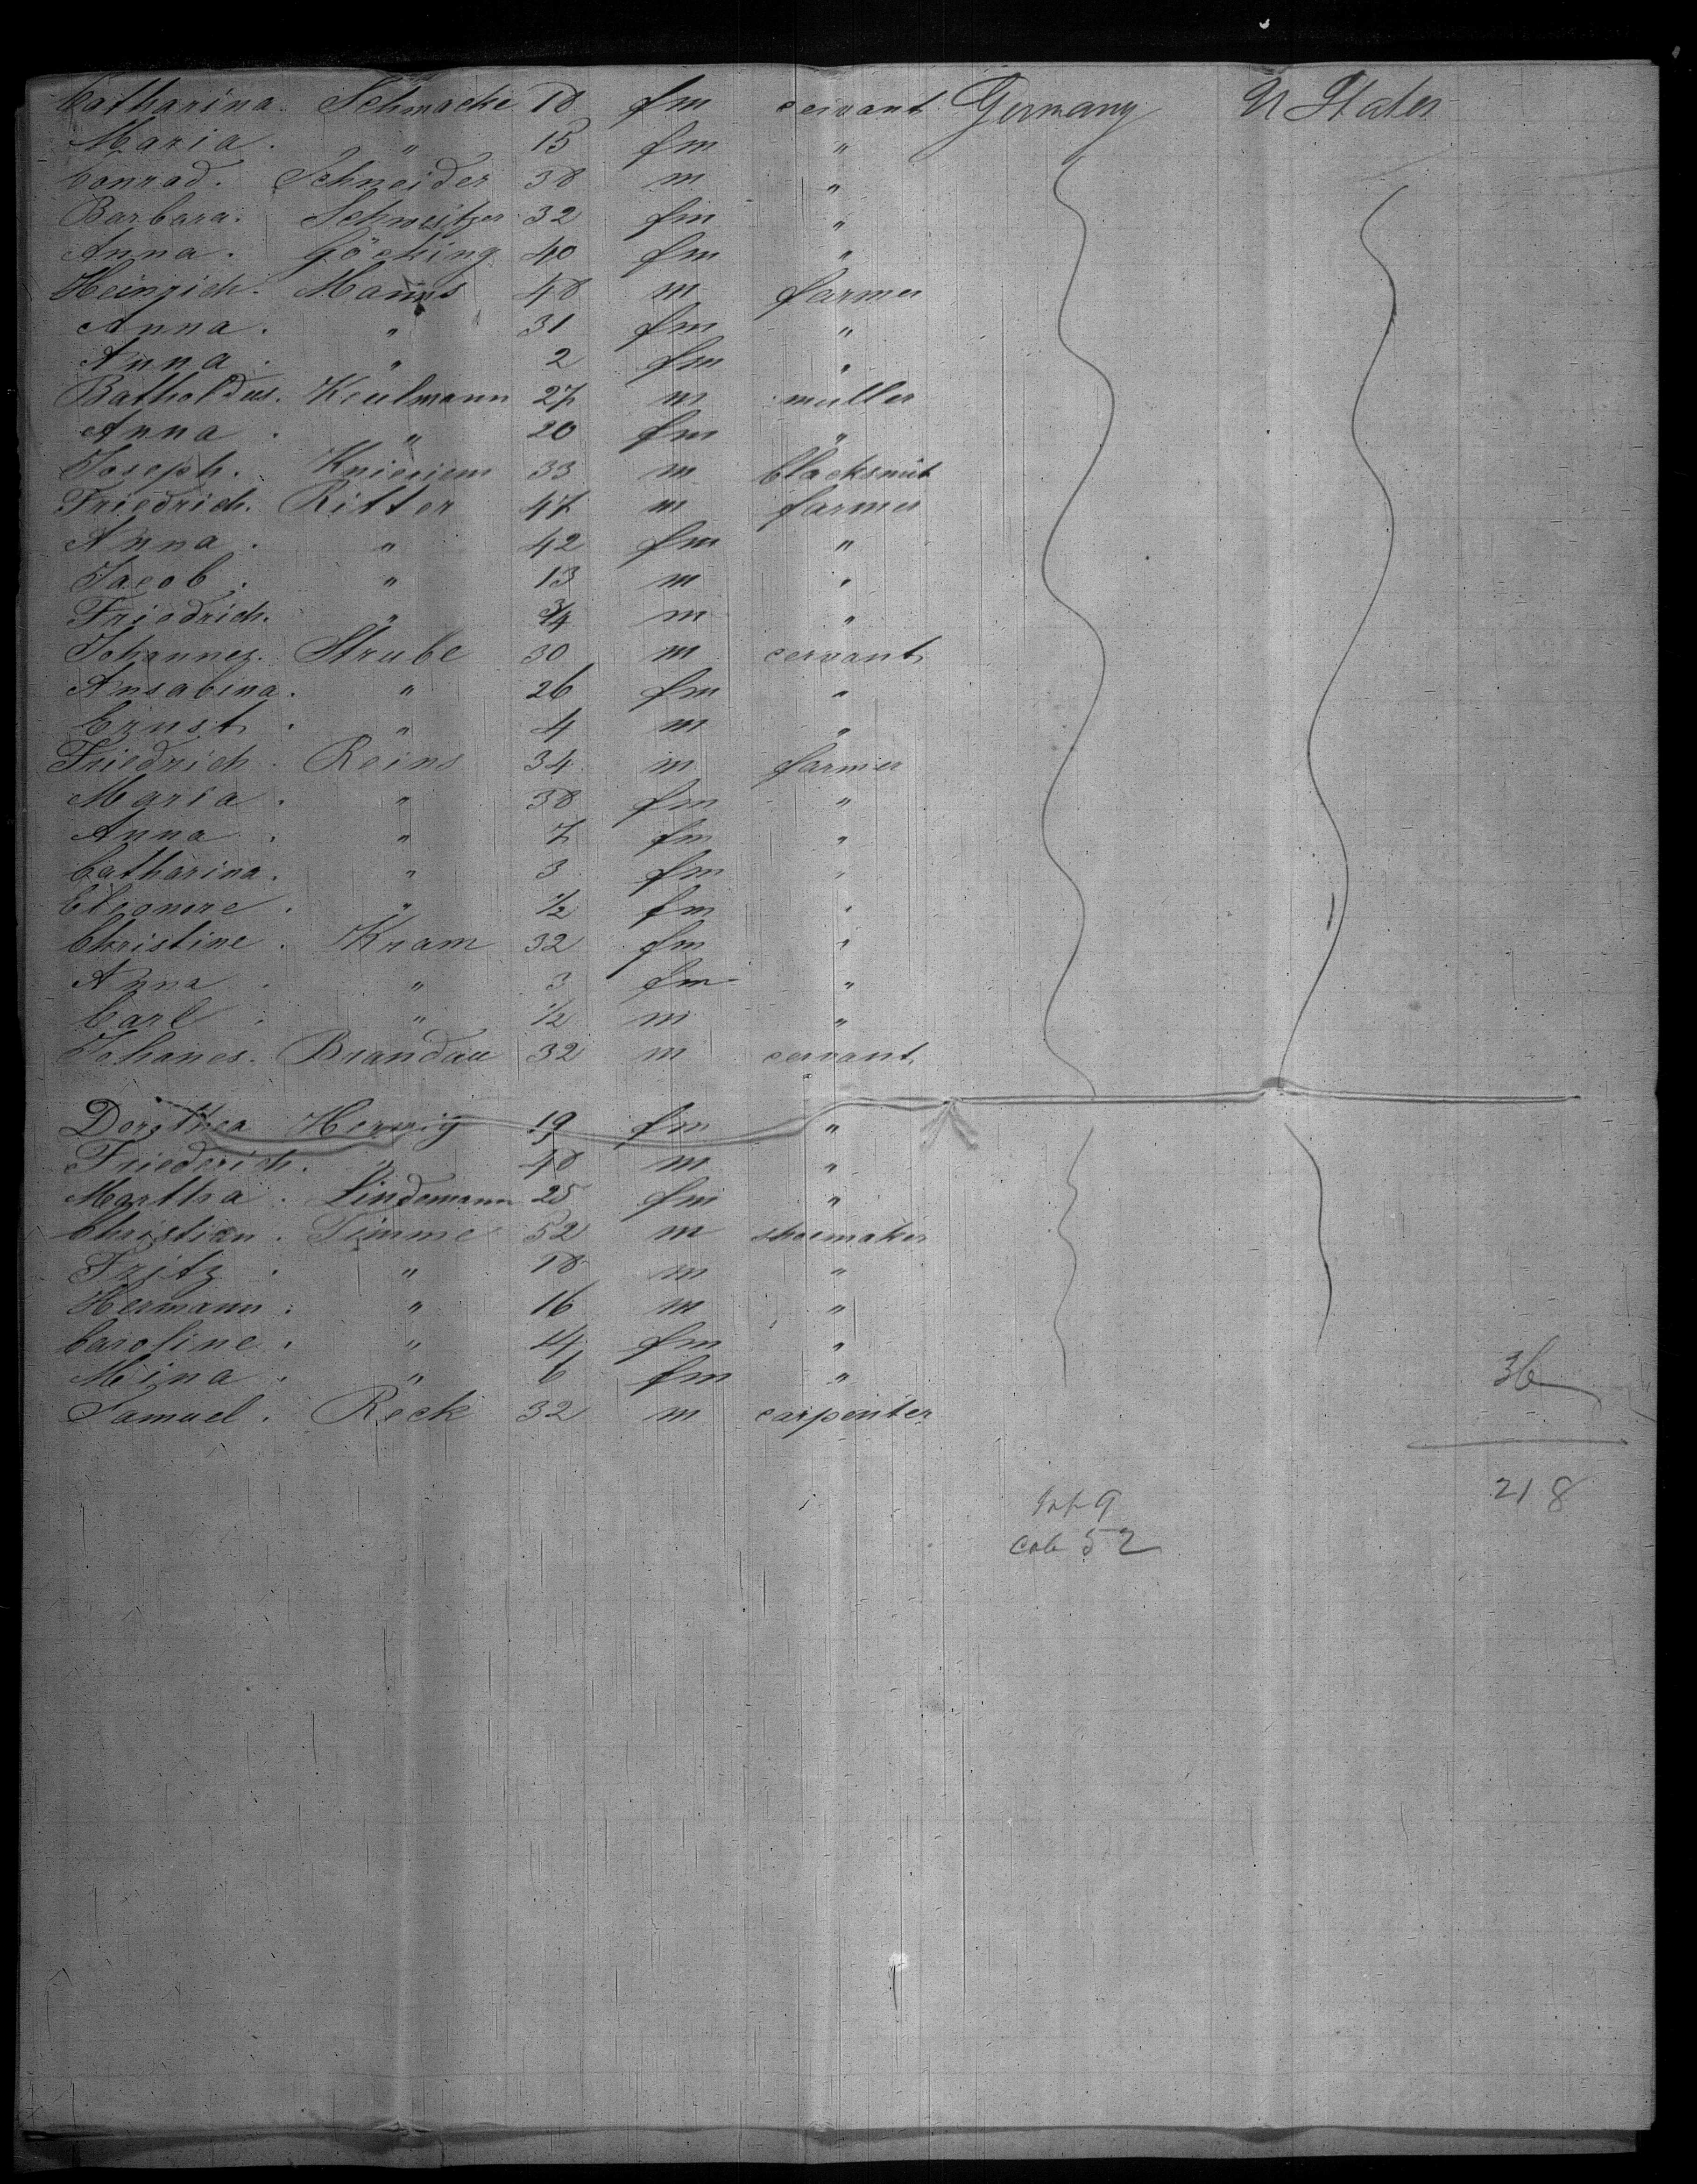 Catharina. Schmacke 18 fm servant Germany U States
Maria. " 15 fm "
Conrad. Schneider 38 m "
Barbara. Schweitzer 32 fm "
Anna. Göcking 40 fm "
Heinrich. Manns 48 m farmer
Anna. " 31 fm "
Anna. " 2 fm "
Batholdus. Keulmann 27 m müller
Anna. " 20 fm "
Joseph. Knieriem 33 m blacksmit
Friedrich. Ritter 47 m farmer
Anna. " 42 fm "
Jacob. " 13 m "
Friedrich. " 3/4 m "
Johannes. Strube 30 m servant
Ansabina. " 26 fm "
Ernst. " 4 m "
Friedrich. Reins 34 m farmer
Maria. " 38 fm "
Anna. " 7 fm "
Catharina. " 3 fm "
Eleonore. " 1/2 fm "
Christine. Kram 32 fm "
Anna. " 3 fm "
Carl. " 1/2 m "
Johanes. Brandau 32 m servant
Dorothea Herwig 19 fm "
Friederich. " 48 m "
Martha. Lindemann 25 fm "
Christian. Timme 52 m shoemaker
Fritz. " 18 m "
Hermann. " 16 m "
Caroline. " 14 fm "
Mina. " 6 fm "
Samuel. Reck 32 m carpenter
36
218
Inf 9
Cab 52